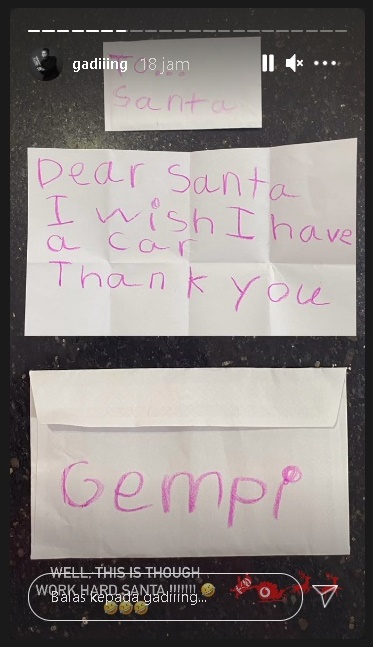 gadiiing 18 jam
To...
Santa
Dear Santa
I wish I have
a car
Thank you
Gempi
WELL, THIS IS THOUGH
WORK HARD SANTA !!!!!!! 🤣
Balas kepada gadiiing...
🤣🤣🤣